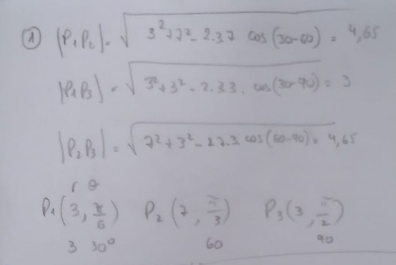 ① |P₁P₂| = √3²+7²-2.3.7 cos(30-60) = 4,65
|P₁P₃| = √3²+3²-2.3.3. cos(30-90) = 3
|P₂P₃| = √7²+3²-2.7.3 cos(60-90) = 4,65
r θ
P₁(3, π/6) P₂(7, π/3) P₃(3, π/2)
3 30° 60 90